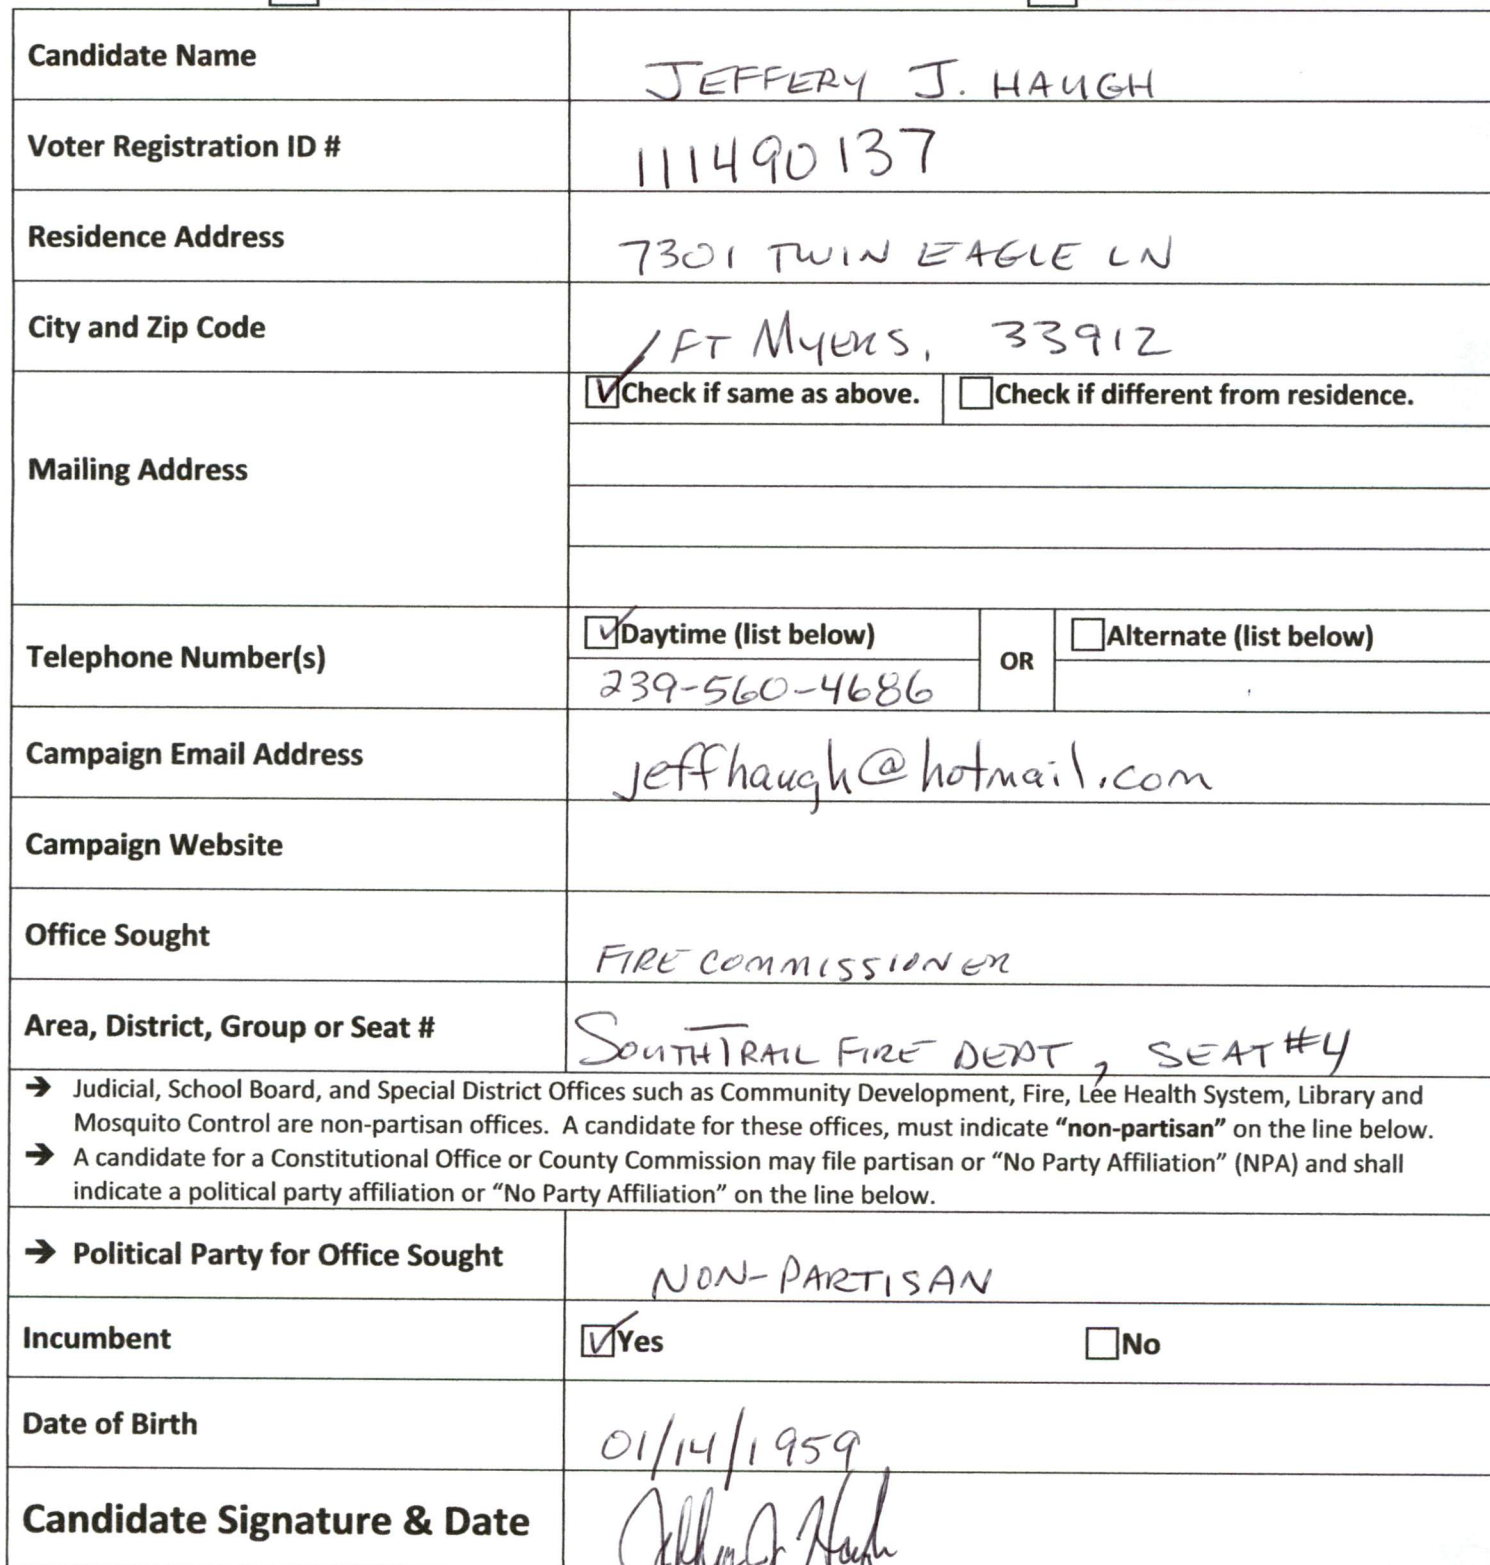 Candidate Name
JEFFERY J. HAUGH
Voter Registration ID #
111490137
Residence Address
7301 TWIN EAGLE LN
City and Zip Code
FT MYERS, 33912
Check if same as above.
Check if different from residence.
Mailing Address
Telephone Number(s)
Daytime (list below)
239-560-4686
OR
Alternate (list below)
Campaign Email Address
jeffhaugh@hotmail.com
Campaign Website
Office Sought
FIRE COMMISSIONER
Area, District, Group or Seat #
SOUTH TRAIL FIRE DEPT, SEAT #4
→ Judicial, School Board, and Special District Offices such as Community Development, Fire, Lee Health System, Library and
Mosquito Control are non-partisan offices. A candidate for these offices, must indicate “non-partisan” on the line below.
→ A candidate for a Constitutional Office or County Commission may file partisan or “No Party Affiliation” (NPA) and shall
indicate a political party affiliation or “No Party Affiliation” on the line below.
→ Political Party for Office Sought
NON-PARTISAN
Incumbent
Yes
No
Date of Birth
01/14/1959
Candidate Signature & Date